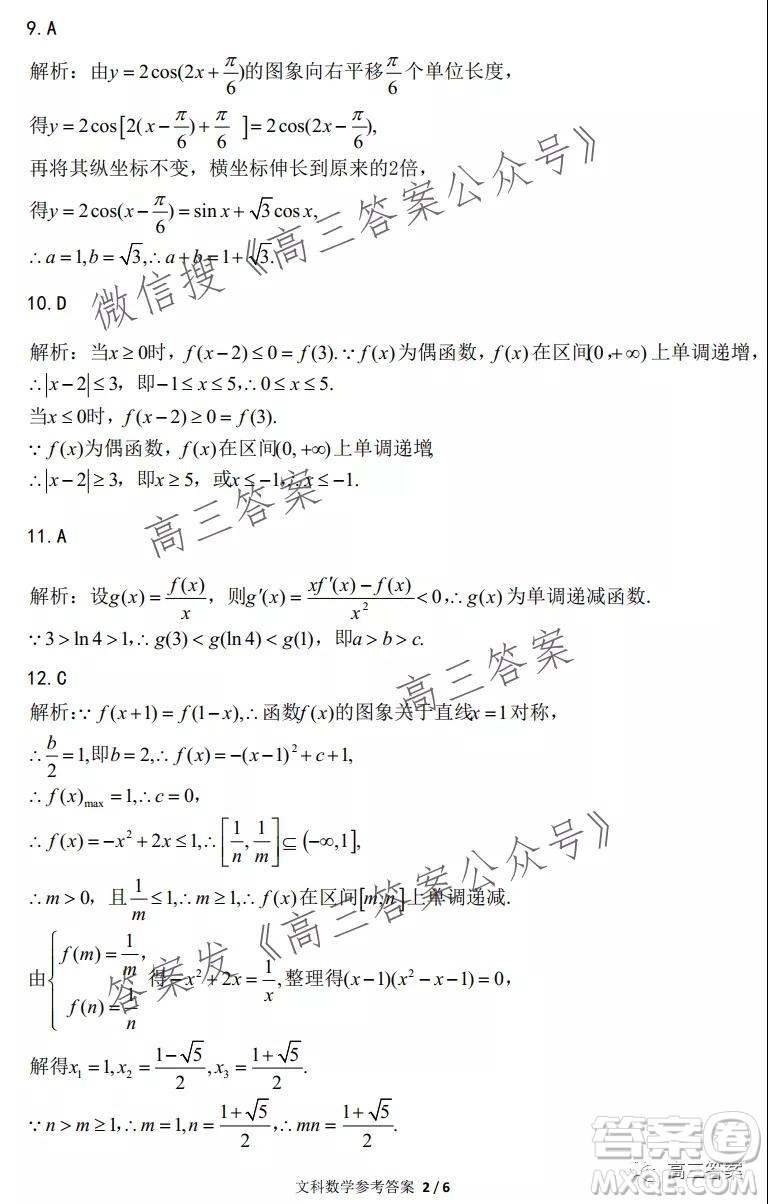 9.A
解析：由y=2cos(2x+π/6)的图象向右平移π/6个单位长度，
得y=2cos[2(x−π/6)+π/6]=2cos(2x−π/6),
再将其纵坐标不变，横坐标伸长到原来的2倍，
得y=2cos(x−π/6)=sin x+√3cos x,
∴a=1,b=√3,∴a+b=1+√3.
微信搜《高三答案公众号》
10.D
解析：当x≥0时，f(x−2)≤0=f(3).∵f(x)为偶函数，f(x)在区间(0,+∞)上单调递增，
∴|x−2|≤3，即−1≤x≤5,∴0≤x≤5.
当x≤0时，f(x−2)≥0=f(3).
∵f(x)为偶函数，f(x)在区间(0,+∞)上单调递增,
∴|x−2|≥3，即x≥5，或x≤−1,∴x≤−1.
高三答案
11.A
解析：设g(x)=f(x)/x，则g′(x)=(xf′(x)−f(x))/x²<0,∴g(x)为单调递减函数.
∵3>ln4>1,∴g(3)<g(ln4)<g(1)，即a>b>c.
高三答案
12.C
解析：∵f(x+1)=f(1−x),∴函数f(x)的图象关于直线x=1对称，
∴b/2=1,即b=2,∴f(x)=−(x−1)²+c+1,
∴f(x)max=1,∴c=0，
∴f(x)=−x²+2x≤1,∴[1/n,1/m]⊆(−∞,1],
∴m>0，且1/m≤1,∴m≥1,∴f(x)在区间[m,n]上单调递减.
答案发《高三答案公众号》
由{f(m)=1/m，f(n)=1/n 得−x²+2x=1/x,整理得(x−1)(x²−x−1)=0，
解得x₁=1,x₂=(1−√5)/2,x₃=(1+√5)/2.
∵n>m≥1,∴m=1,n=(1+√5)/2,∴mn=(1+√5)/2.
答案圈
高三答案
MXQE.COM
文科数学参考答案 2/6